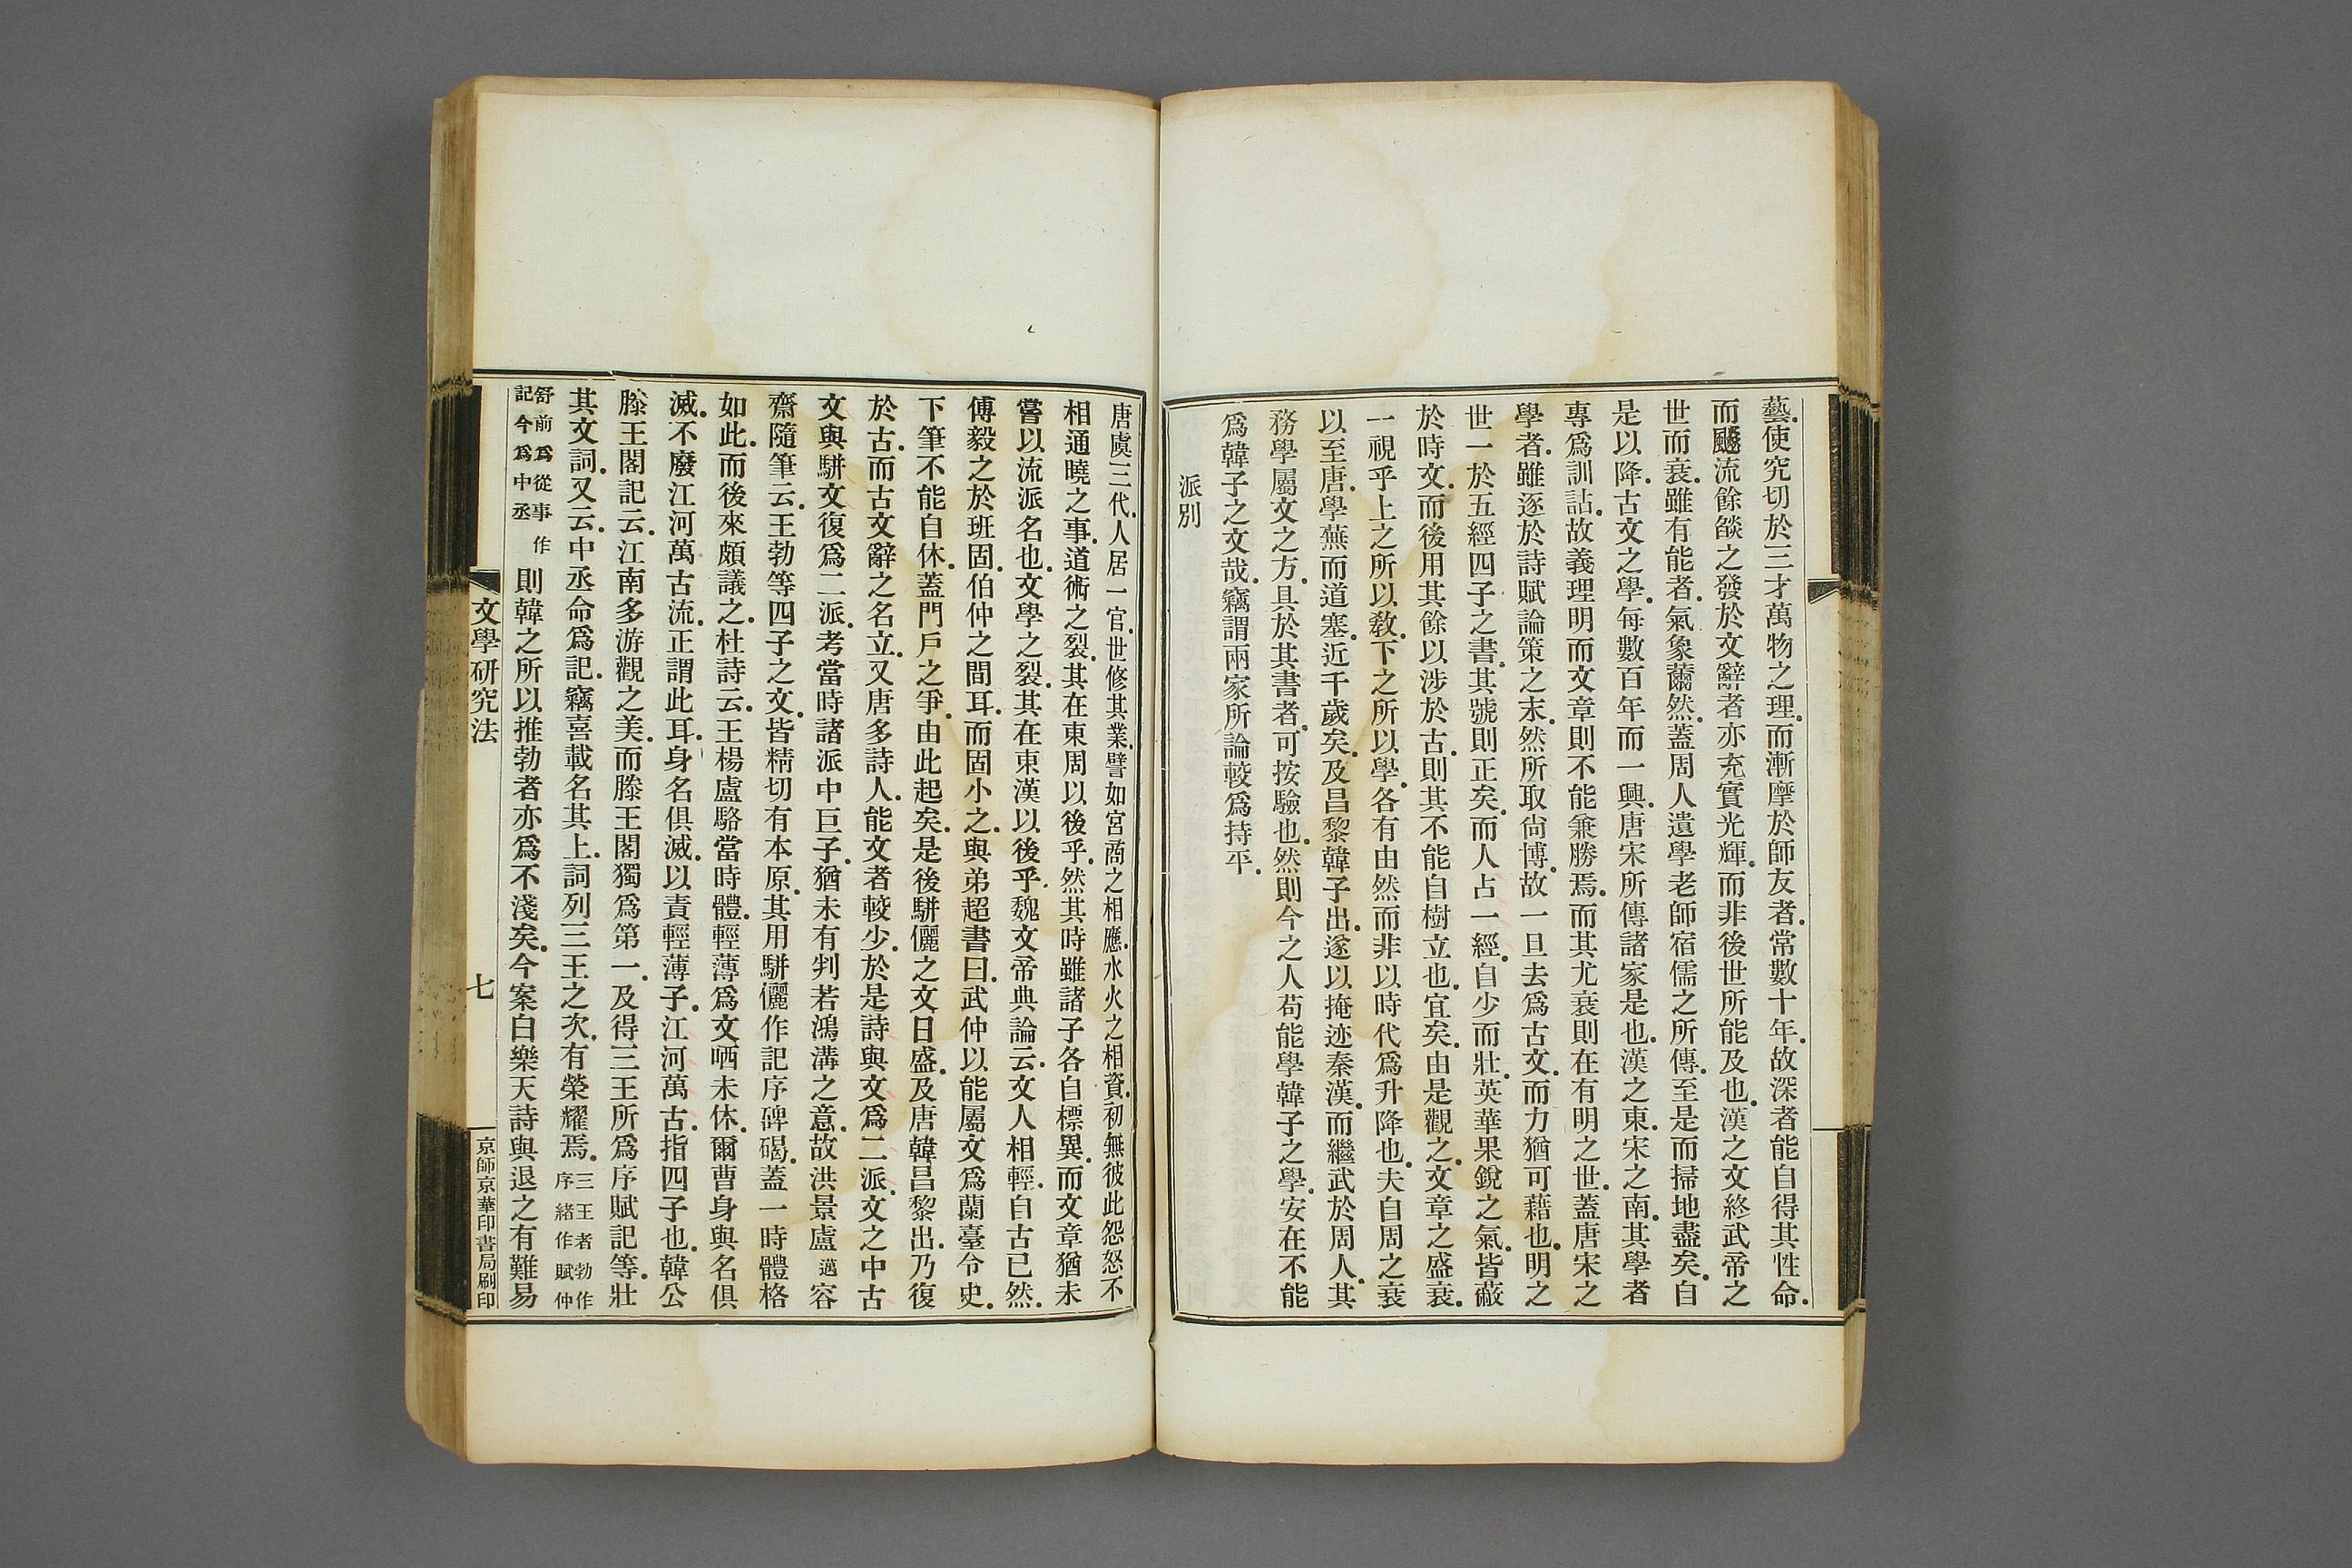 藝。使究切於三才萬物之理。而漸摩於師友者。常數十年。故深者能自得其性命。
而飈流餘燄之發於文辭者亦充實光輝。而非後世所能及也。漢之文終武帝之
世而衰。雖有能者。氣象薾然。蓋周人遺學老師宿儒之所傳。至是而掃地盡矣。自
是以降。古文之學。每數百年而一興。唐宋所傳諸家是也。漢之東。宋之南。其學者
專爲訓詁。故義理明而文章則不能兼勝焉。而其尤衰則在有明之世。蓋唐宋之
學者。雖逐於詩賦論策之末。然所取尙博。故一旦去爲古文。而力猶可藉也。明之
世一於五經四子之書。其號則正矣。而人占一經。自少而壯。英華果銳之氣。皆蔽
於時文。而後用其餘以涉於古。則其不能自樹立也。宜矣。由是觀之。文章之盛衰。
一視乎上之所以敎。下之所以學。各有由然而非以時代爲升降也。夫自周之衰
以至唐。學蕪而道塞。近千歲矣。及昌黎韓子出。遂以掩迹秦漢。而繼武於周人。其
務學屬文之方。具於其書者。可按驗也。然則今之人苟能學韓子之學。安在不能
爲韓子之文哉。竊謂兩家所論較爲持平。
派別
唐虞三代。人居一官。世修其業。譬如宮商之相應。水火之相資。初無彼此怨怒不
相通曉之事。道術之裂。其在東周以後乎。然其時雖諸子各自標異。而文章猶未
嘗以流派名也。文學之裂。其在東漢以後乎。魏文帝典論云。文人相輕。自古已然。
傅毅之於班固。伯仲之間耳。而固小之。與弟超書曰。武仲以能屬文爲蘭臺令史。
下筆不能自休。蓋門戶之爭。由此起矣。是後駢儷之文日盛。及唐韓昌黎出。乃復
於古。而古文辭之名立。又唐多詩人。能文者較少。於是詩與文爲二派。文之中古
文與駢文復爲二派。考當時諸派中巨子。猶未有判若鴻溝之意。故洪景盧邁容
齋隨筆云。王勃等四子之文。皆精切有本原。其用駢儷作記序碑碣。蓋一時體格
如此。而後來頗議之。杜詩云。王楊盧駱當時體。輕薄爲文哂未休。爾曹身與名俱
滅。不廢江河萬古流。正謂此耳。身名俱滅。以責輕薄子。江河萬古。指四子也。韓公
滕王閣記云。江南多游觀之美。而滕王閣獨爲第一。及得三王所爲序賦記等。壯
其文詞。又云。中丞命爲記。竊喜載名其上。詞列三王之次。有榮耀焉。三王者勃作序緒作賦仲
舒前爲從事作記今爲中丞則韓之所以推勃者亦爲不淺矣。今案白樂天詩與退之有難易
文學研究法
七
京師京華印書局刷印